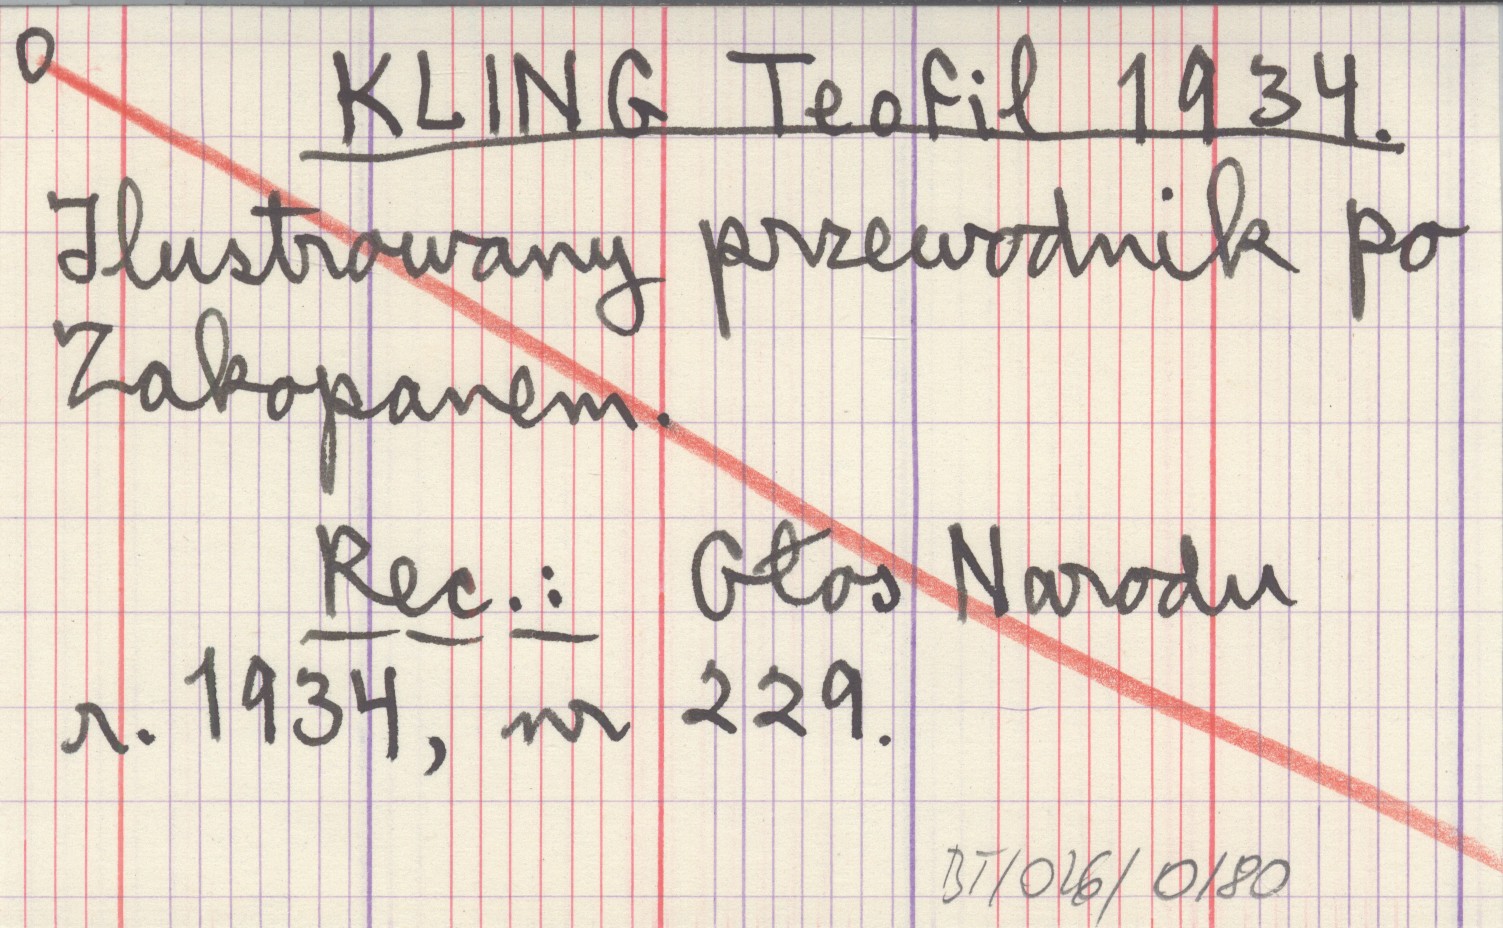 O
KLING Teofil 1934.
Ilustrowany przewodnik po
Zakopanem.
Rec.: Głos Narodu
r. 1934, nr 229.
BT/026/0180